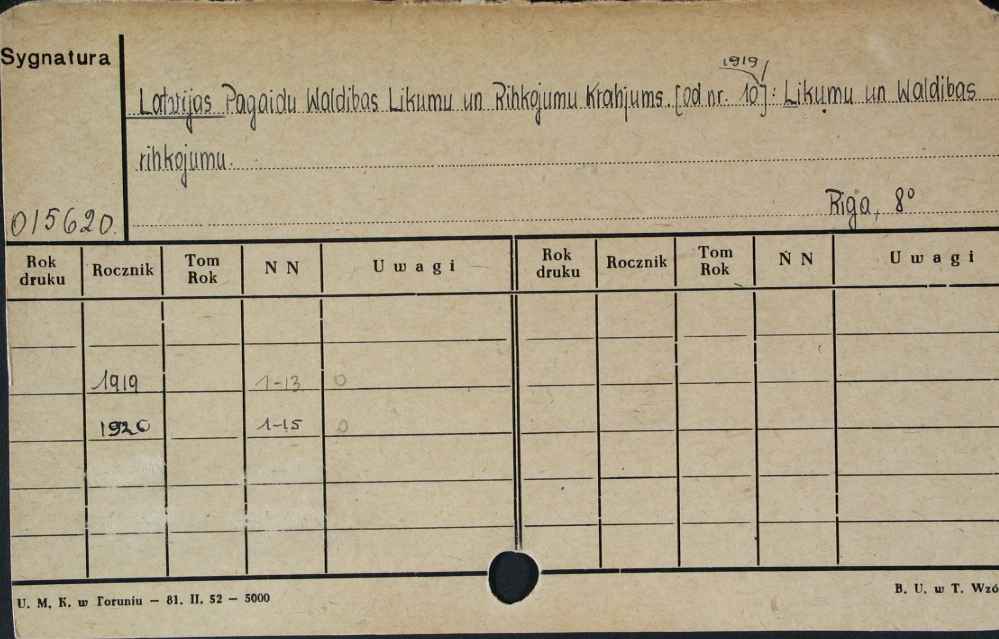 Sygnatura
1919/
Latvijas Pagaidu Waldibas Likumu un Rihkojumu Krahjums. [od nr. 10]: Likumu un Waldibas
rihkojumu.
Riga, 8°
015620.
Rok druku Rocznik Tom Rok N N Uwagi Rok druku Rocznik Tom Rok N N Uwagi
1919 1-13 0
1920 1-15 0
U. M. K. w Toruniu — 81. II. 52 — 5000
B. U. w T. Wzó